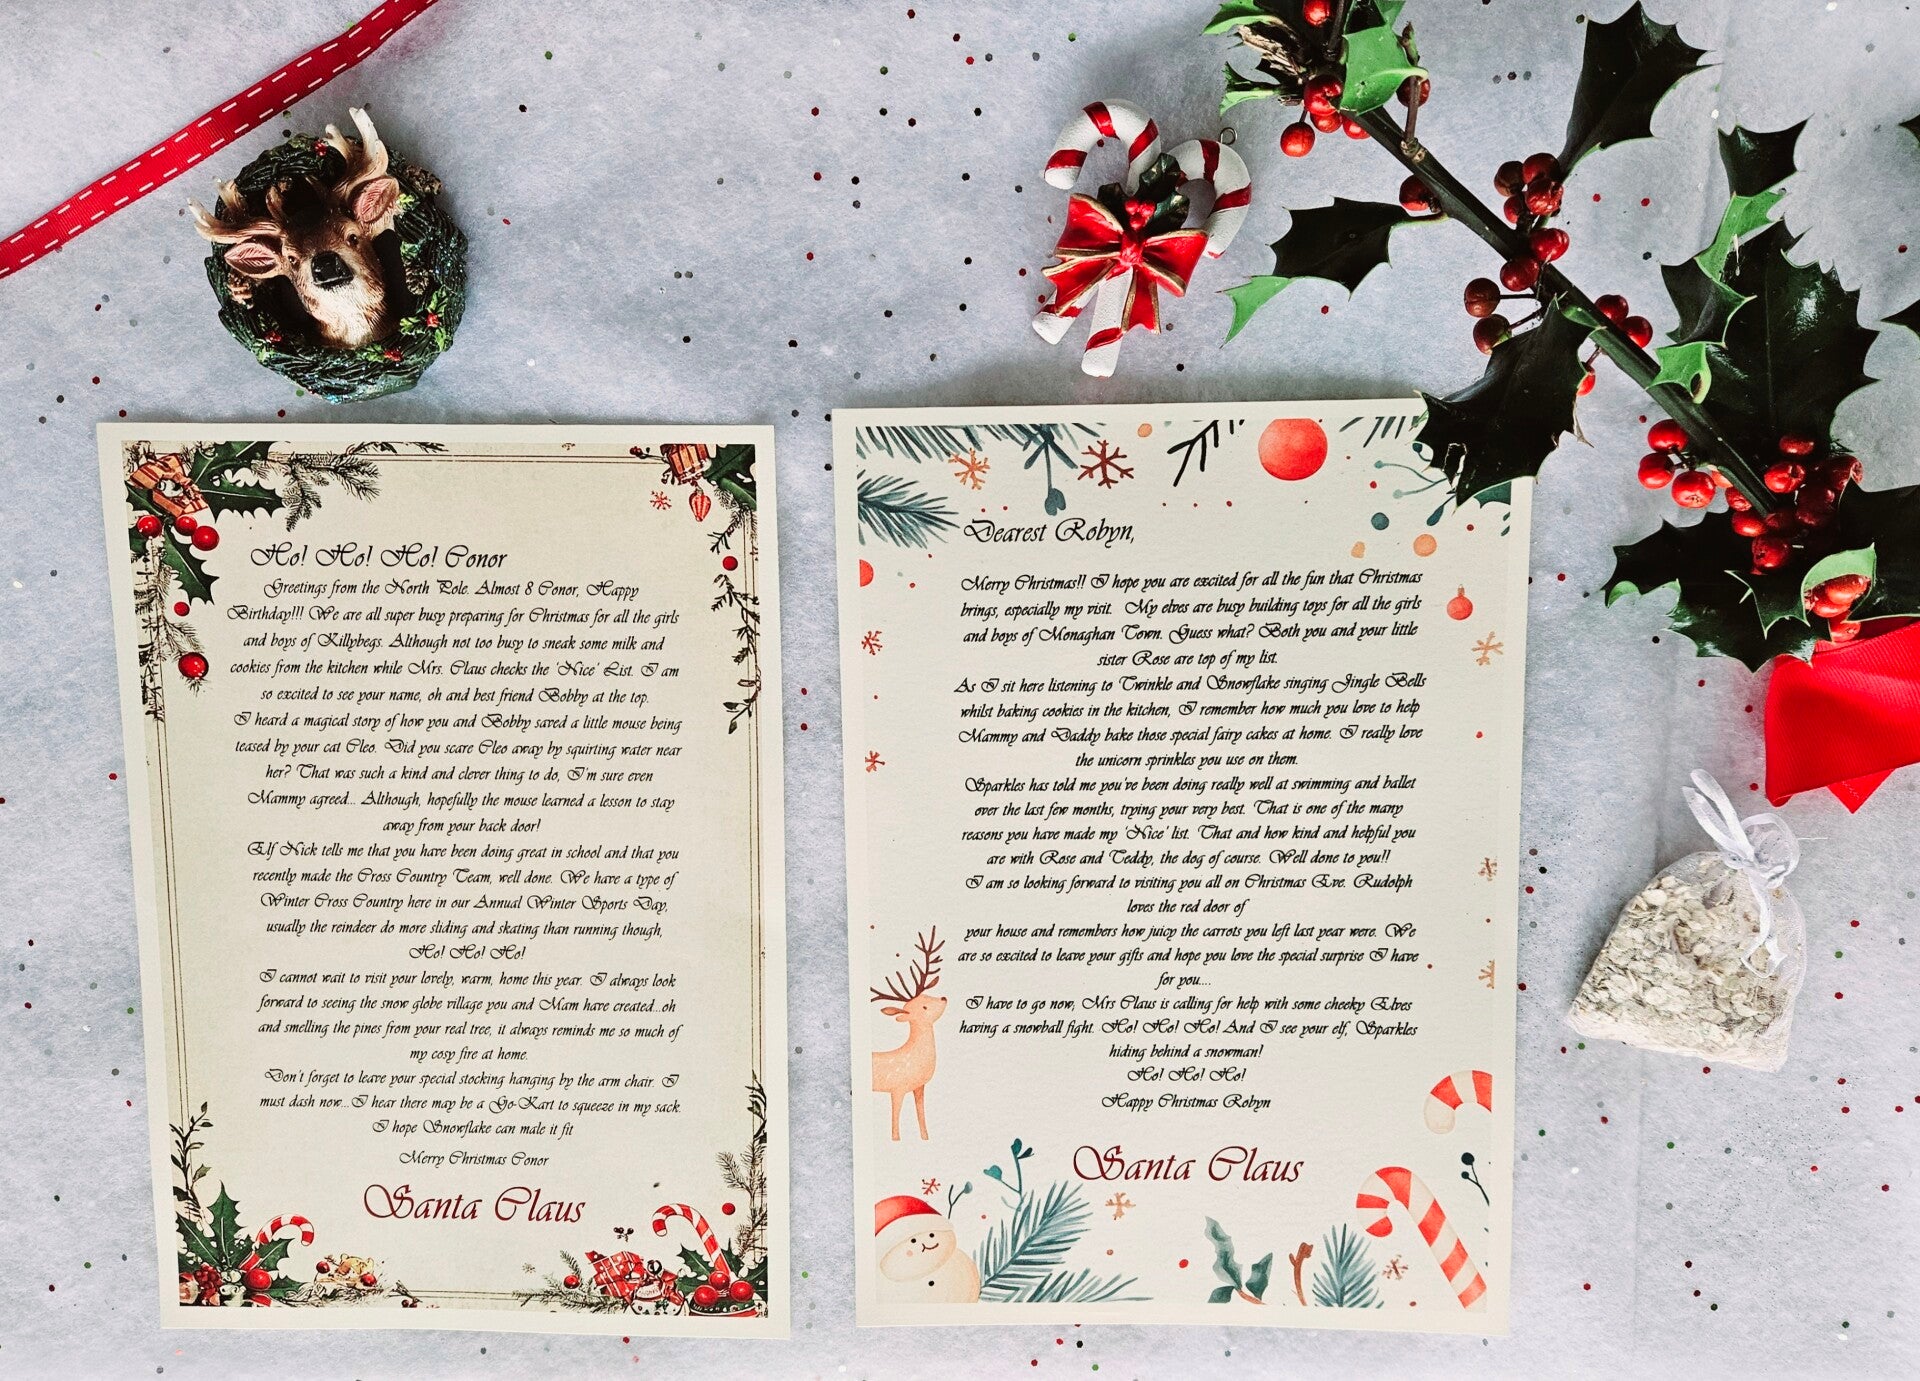 Ho! Ho! Ho! Conor
Greetings from the North Pole. Almost 8 Conor, Happy
Birthday!!! We are all super busy preparing for Christmas for all the girls
and boys of Killybegs. Although not too busy to sneak some milk and
cookies from the kitchen while Mrs. Claus checks the 'Nice' List. I am
so excited to see your name, oh and best friend Bobby at the top.
I heard a magical story of how you and Bobby saved a little mouse being
teased by your cat Cleo. Did you scare Cleo away by squirting water near
her? That was such a kind and clever thing to do, I'm sure even
Mammy agreed... Although, hopefully the mouse learned a lesson to stay
away from your back door!
Elf Nick tells me that you have been doing great in school and that you
recently made the Cross Country Team, well done. We have a type of
Winter Cross Country here in our Annual Winter Sports Day,
usually the reindeer do more sliding and skating than running though,
Ho! Ho! Ho!
I cannot wait to visit your lovely, warm, home this year. I always look
forward to seeing the snow globe village you and Mam have created...oh
and smelling the pines from your real tree, it always reminds me so much of
my cosy fire at home.
Don't forget to leave your special stocking hanging by the arm chair. I
must dash now...I hear there may be a Go-Kart to squeeze in my sack.
I hope Snowflake can male it fit
Merry Christmas Conor
Santa Claus
Dearest Robyn,
Merry Christmas!! I hope you are excited for all the fun that Christmas
brings, especially my visit. My elves are busy building toys for all the girls
and boys of Monaghan Town. Guess what? Both you and your little
sister Rose are top of my list.
As I sit here listening to Twinkle and Snowflake singing Jingle Bells
whilst baking cookies in the kitchen, I remember how much you love to help
Mammy and Daddy bake those special fairy cakes at home. I really love
the unicorn sprinkles you use on them.
Sparkles has told me you've been doing really well at swimming and ballet
over the last few months, trying your very best. That is one of the many
reasons you have made my 'Nice' list. That and how kind and helpful you
are with Rose and Teddy, the dog of course. Well done to you!!
I am so looking forward to visiting you all on Christmas Eve. Rudolph
loves the red door of
your house and remembers how juicy the carrots you left last year were. We
are so excited to leave your gifts and hope you love the special surprise I have
for you....
I have to go now, Mrs Claus is calling for help with some cheeky Elves
having a snowball fight. Ho! Ho! Ho! And I see your elf, Sparkles
hiding behind a snowman!
Ho! Ho! Ho!
Happy Christmas Robyn
Santa Claus